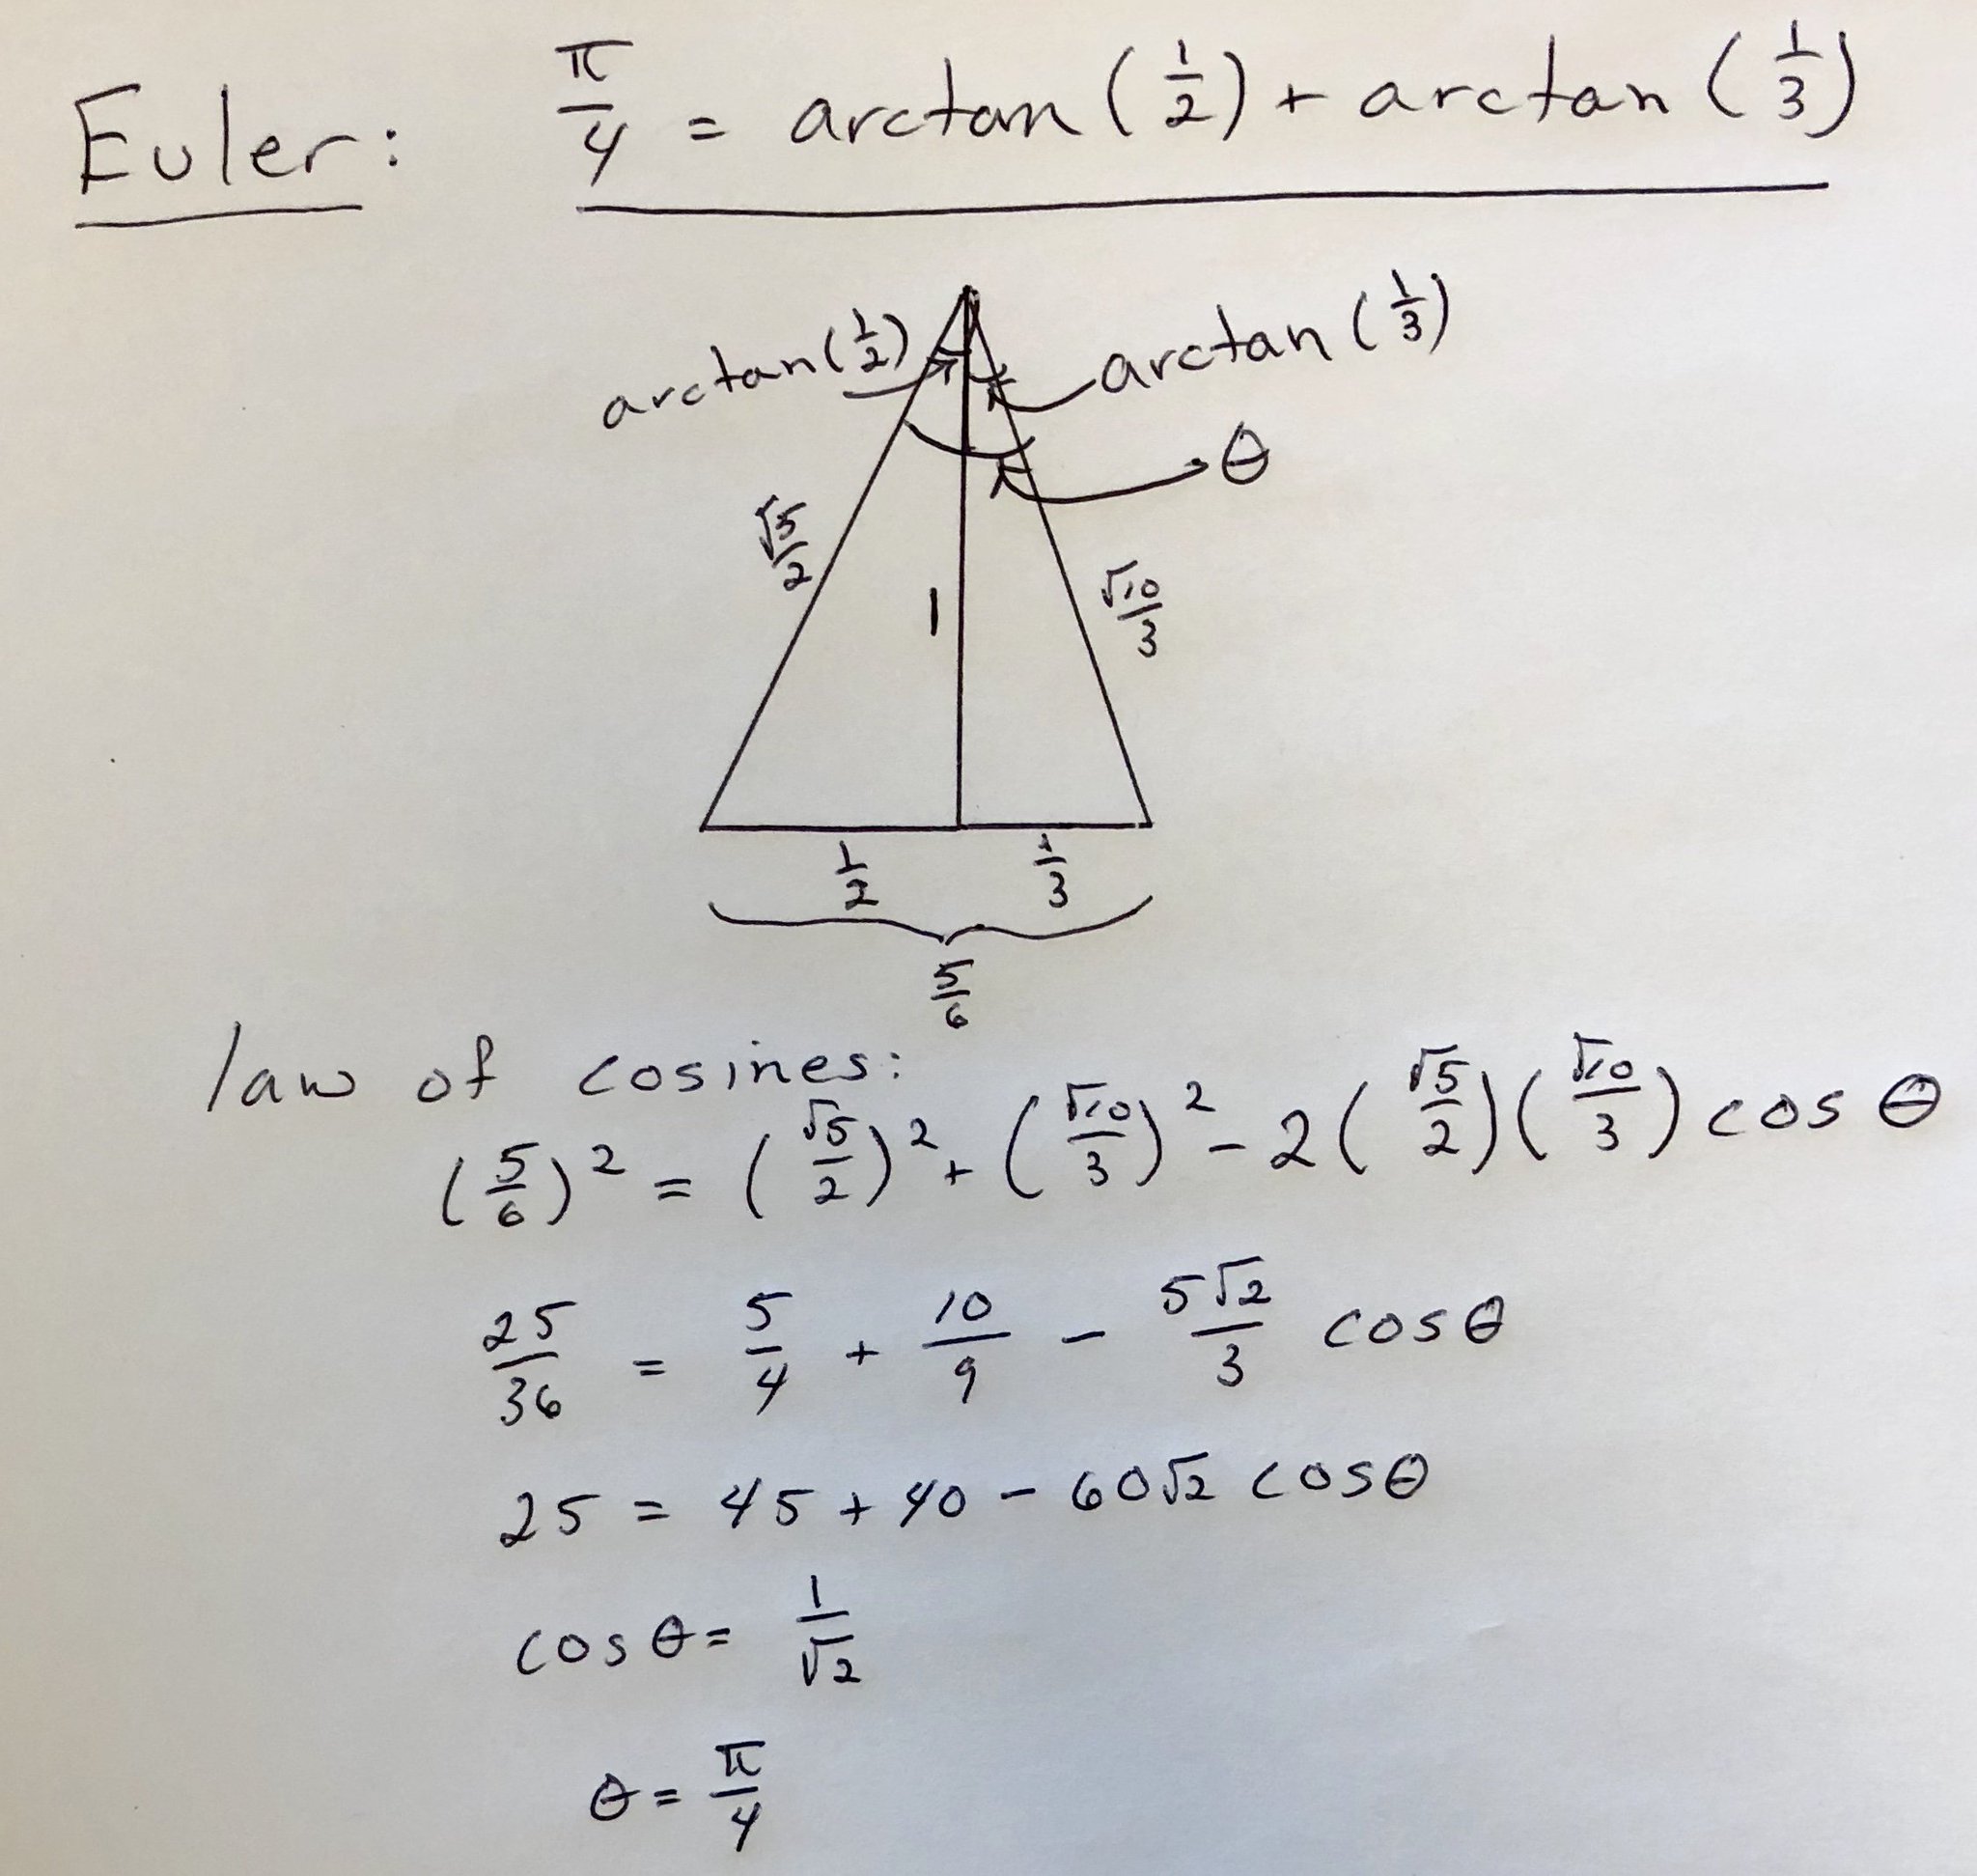 Euler: π/4 = arctan(1/2) + arctan(1/3)
arctan(1/2)
arctan(1/3)
θ
√5/2
1
√10/3
1/2
1/3
5/6
law of cosines:
(5/6)² = (√5/2)² + (√10/3)² - 2(√5/2)(√10/3) cos θ
25/36 = 5/4 + 10/9 - 5√2/3 cos θ
25 = 45 + 40 - 60√2 cos θ
cos θ = 1/√2
θ = π/4